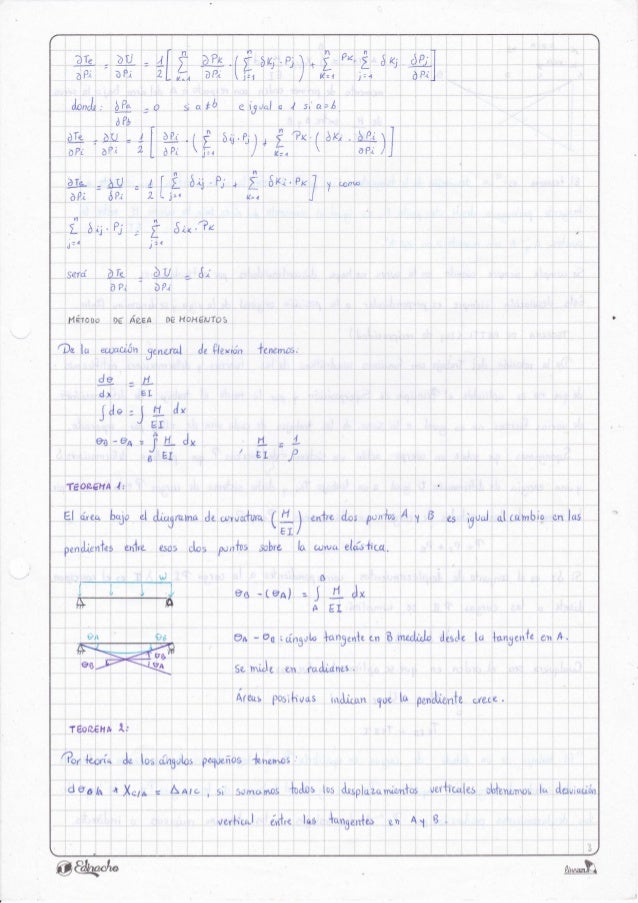 ∂Te/∂Pi = ∂U/∂Pi = 1/2 [ Σ(k=1→n) ∂Pk/∂Pi · ( Σ(j=1→n) δkj · Pj ) + Σ(k=1→n) Pk · Σ(j=1→n) δkj ∂Pj/∂Pi ]
donde: ∂Pa/∂Pb = 0 si a≠b e igual a 1 si a=b
∂Te/∂Pi = ∂U/∂Pi = 1/2 [ ∂Pi/∂Pi · ( Σ(j=1→n) δij · Pj ) + Σ(k=1→n) Pk · ( δki · ∂Pi/∂Pi ) ]
∂Te/∂Pi = ∂U/∂Pi = 1/2 [ Σ(j=1→n) δij · Pj + Σ(k=1→n) δki · Pk ] y como
Σ(j=1→n) δij · Pj = Σ(j=1→n) δik · Pk
será ∂Te/∂Pi = ∂U/∂Pi = δi
MÉTODO DE ÁREA DE MOMENTOS
De la ecuación general de flexión tenemos:
dθ/dx = M/EI
∫dθ = ∫ M/EI dx
θB - θA = ∫(B→A) M/EI dx , M/EI = 1/ρ
TEOREMA 1:
El área bajo el diagrama de curvatura (M/EI) entre dos puntos A y B es igual al cambio en las
pendientes entre esos dos puntos sobre la curva elástica.
W
θB - (θA) = ∫(A→B) M/EI dx
θA θB
θB θB θA
θA - θB : ángulo tangente en B medido desde la tangente en A.
Se mide en radianes.
Áreas positivas indican que la pendiente crece.
TEOREMA 2:
Por teoría de los ángulos pequeños tenemos:
dθB/A * XC/A = ΔA/C , si sumamos todos los desplazamientos verticales obtenemos la desviación
vertical entre las tangentes en A y B.
3
Ednacho